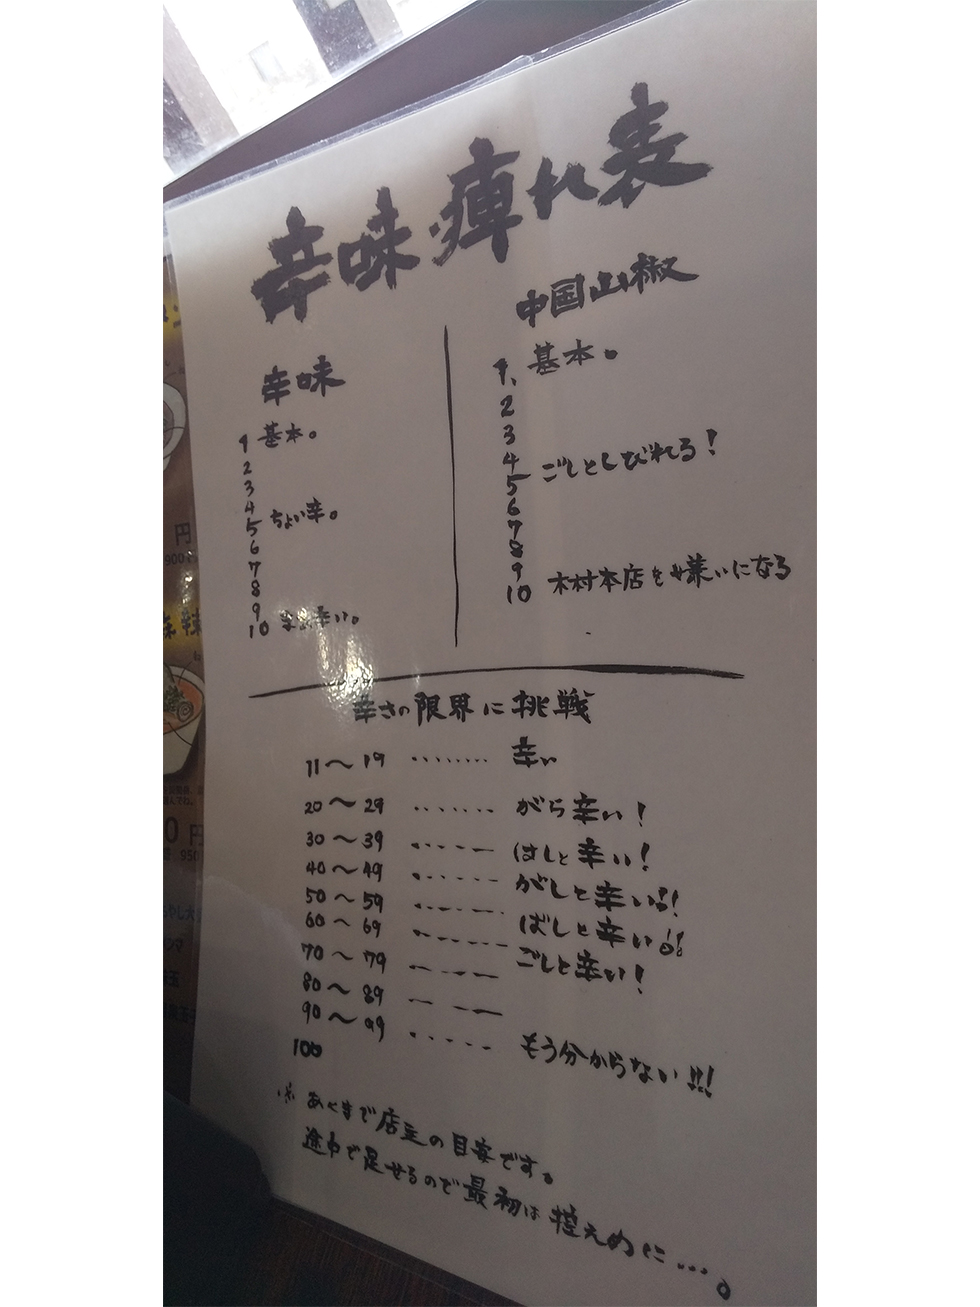 辛味・痺れ表
辛味
1 基本。
2
3
4
5 ちょい辛。
6
7
8
9
10 まあ辛い。
中国山椒
1、基本。
2
3
4
5 ごしとしびれる!
6
7
8
9
10 木村本店を嫌いになる
辛さの限界に挑戦
11〜19 ········ 辛い
20〜29 ······· がら辛い!
30〜39 ····· はしと辛い!
40〜49 ······· がしと辛い!!
50〜59 ······ ばしと辛い!!
60〜69 ······· ごしと辛い!
70〜79
80〜89
90〜99 ······ もう分からない!!!
100
※ あくまで店主の目安です。
途中で足せるので最初は控えめに…。
円
900
950